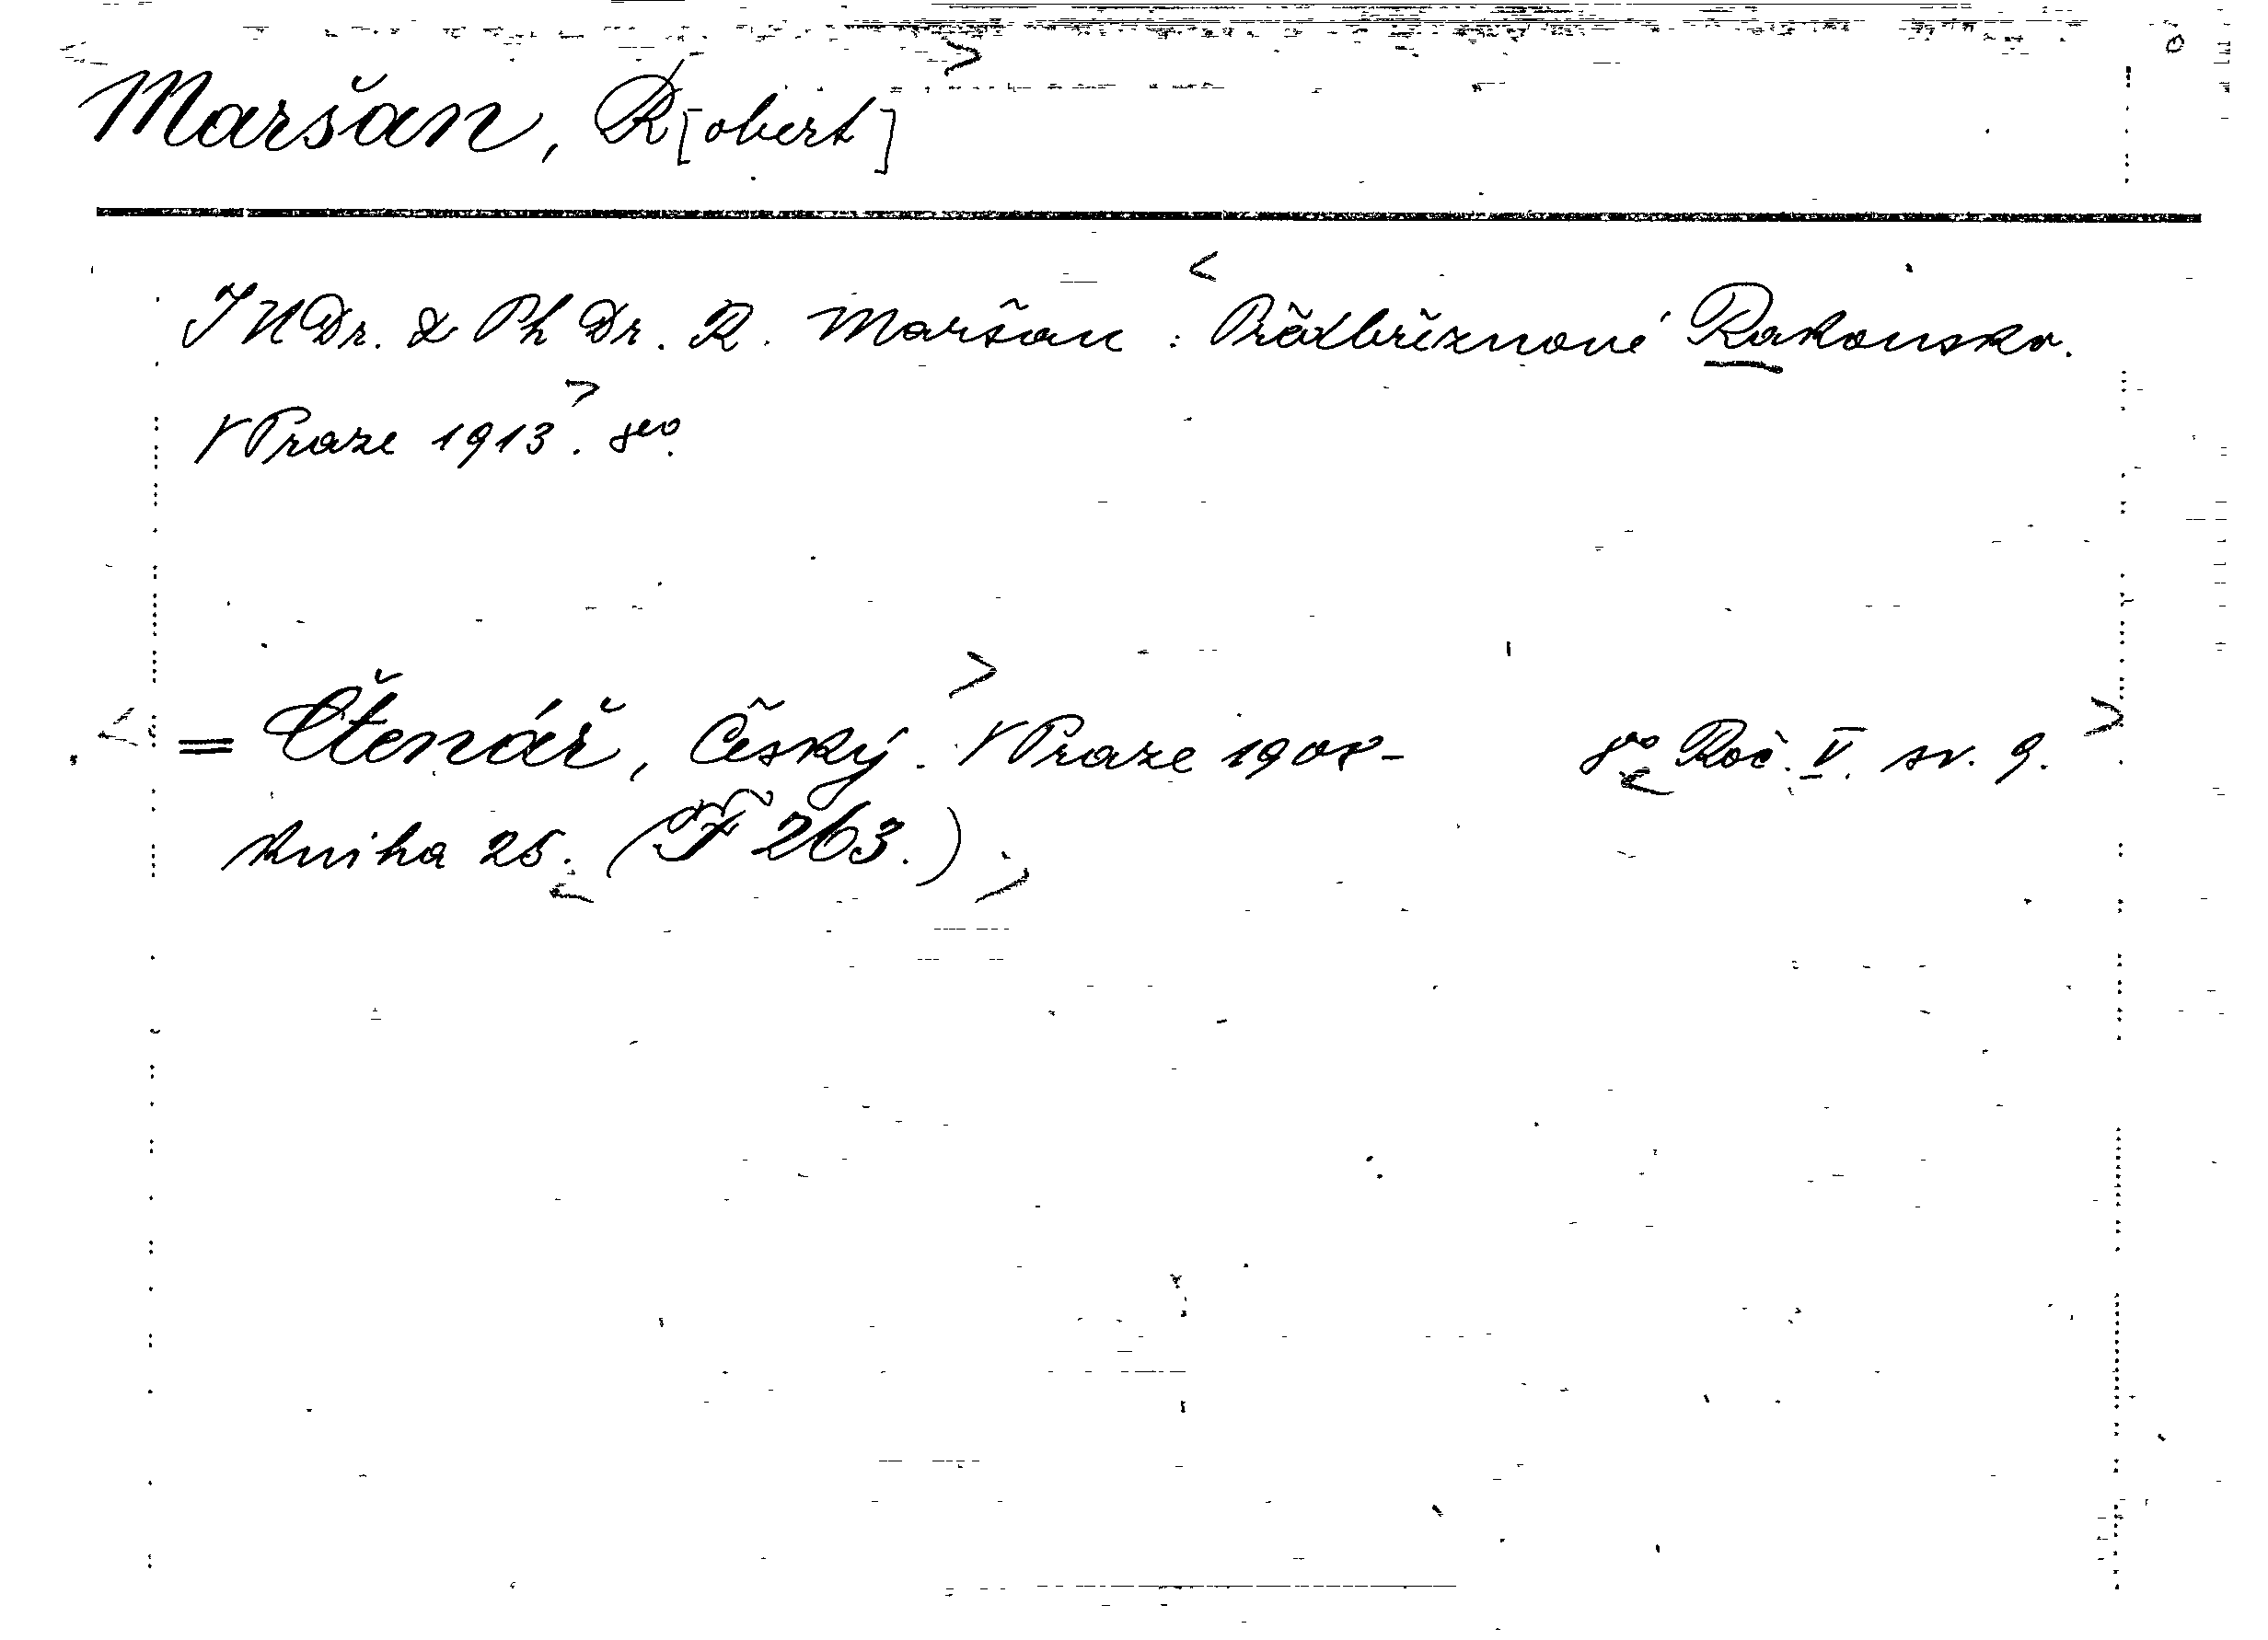 Maršan, R[obert]
JUDr. & PhDr. R. Maršan : Předbřeznové Rakousko.
V Praze 1913. 8vo.
= Čtenář, Český. V Praze 1908- 8vo Roč. V. sv. 9.
Kniha 25. (F 263.)